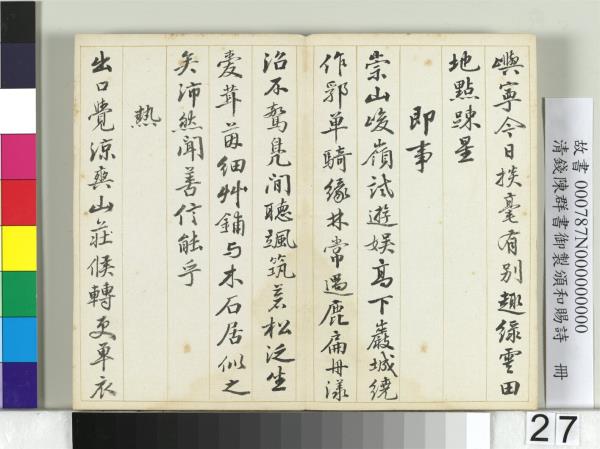 嶼寧今日掞毫有別趣綠雲田
地點疎星
即事
崇山峻嶺試遊娛高下巖城繞
作郛單騎緣林常遇鹿扁舟漾
沼不驚鳧間聽颯筑若松泛坐
愛茸茵細艸鋪与木石居似之
矣沛然聞善信能乎
熱
出口覺涼與山莊候轉更單衣
故書 000787N000000000
清錢陳群書御製頒和賜詩 冊
27